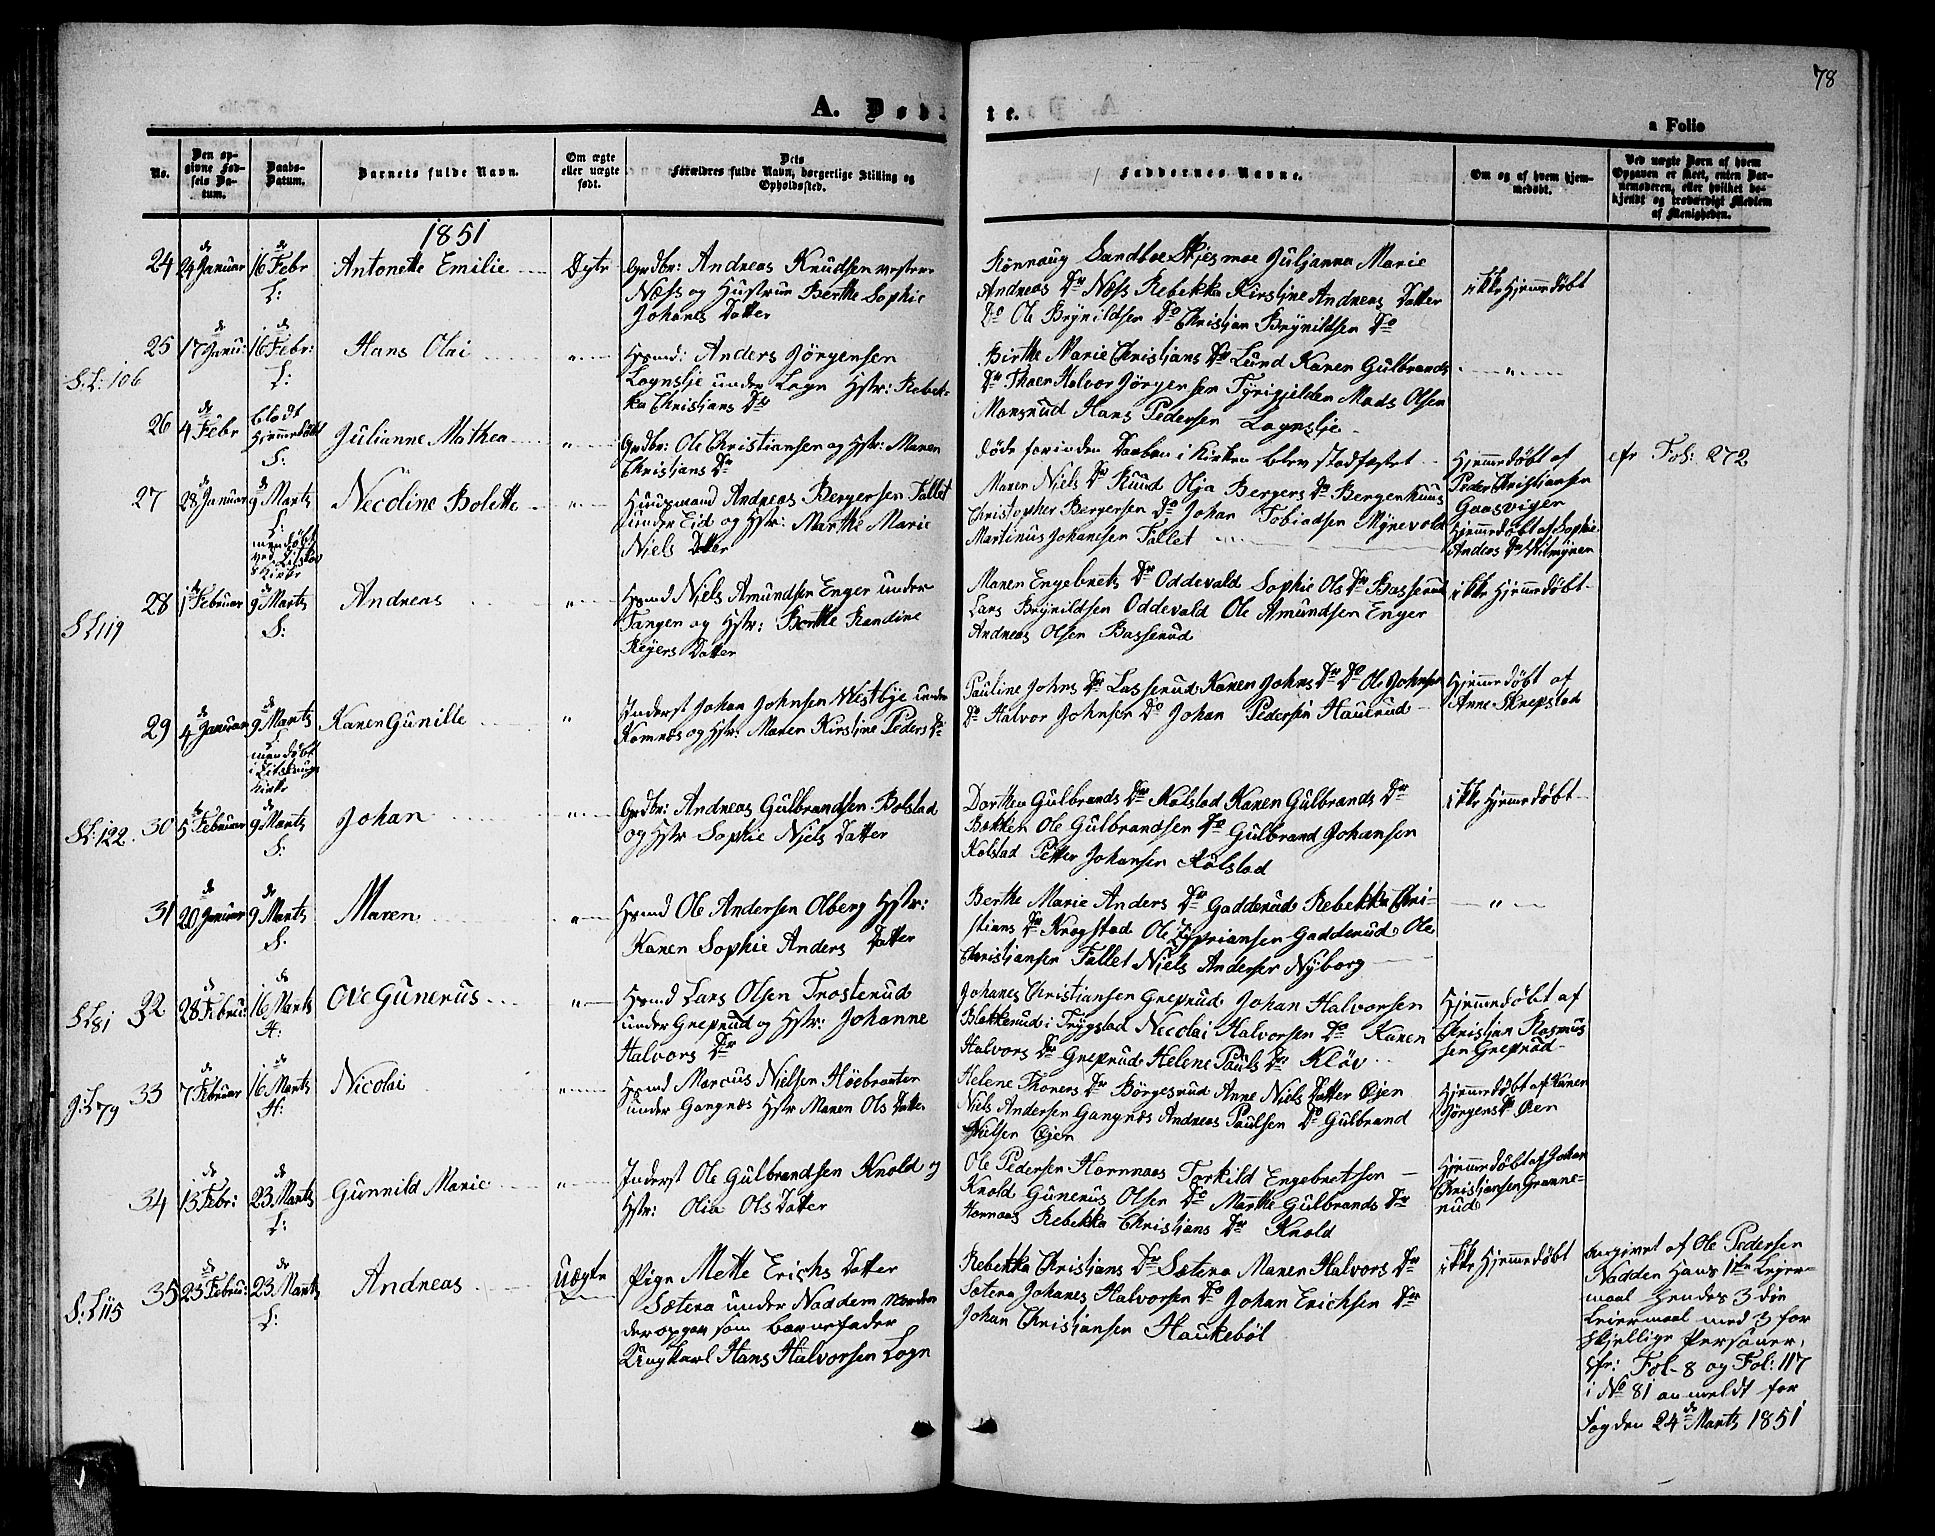 78
A. Døbte.
a Folio
No.
Den op-
givne Fød-
sels Da-
tum.
Daabs-
Datum.
Barnets fulde Navn.
Om ægte
eller uægte
født.
Dets
Forældres fulde Navn, borgerlige Stilling og
Opholdssted.
Faddernes Navne.
Om og af hvem hjem-
medøbt.
Ved uægte Børn af hvem
Opgaven er skeet, enten Bar-
nemoderen, eller hvilket be-
kjendt og troværdigt Medlem
af Menigheden.
1851
24
24de Januar
16de Febr
L:
Antonette Emilie
Egte
Grdbr: Andreas Knudsen vestre
Næss og Hustrue Berthe Sophie
Johanes Datter
Rønnaug Sandboe Skjesmoe Juljanna Marie
Andreas Dr Næss Rebekka Kirstine Andreas Datter
Do Ole Brynildsen Do Christian Brynildsen Do
ikke Hjemmedøbt
S.L: 106
25
17de Janu:
16de Febr:
L:
Hans Olai
"
Hsmd: Anders Jørgensen
Lognslje under Logn Hstr: Rebek-
ka Christians Dr
Birthe Marie Christjans Dr Lund Karen Gulbrands
Dr Thaer Halvor Jørgensen Tyrigjelden Mads Olsen
Mansrud Hans Pedersen Lognslje
"
26
4de Febr
blodt
hjemmedøbt
S:
Julianne Mathea
"
Grdbr: Ole Christiansen og Hstr: Maren
Christians Dr
døde forinden Daaben i Kirken blev stadfæstet
Hjemmedøbt af
Peder Christiansen
Gaasviger
cfr Fol: 272
27
28de Januar
9de Marts
L:
døbt
ved
Kirke
Necoline Bolette
"
Huusmand Andreas Bergersen Fallet
under Eid og Hstr: Marthe Marie
Niels Datter
Maren Niels Dr Ruud Olja Bergers Dr Bergerhuus
Christopher Bergersen Do Johan Tobiadsen Mynevold
Martinus Johansen Fallet
Hjemmedøbt af Sophie
Anders Dr
S L 119
28
1ste Februar
9de Marts
S:
Andreas
"
Hsmd Niels Amundsen Enger under
Tangen og Hstr: Berthe Randine
Reyers Datter
Maren Engebrets Dr Oddevald Sophie Ols Dr Basserud
Lars Brynildsen Oddevald Ole Amundsen Enger
Andreas Olsen Basserud
ikke Hjemmedøbt
29
4de Januar
9de Marts
døbt
i
Kirke
Karen Gunille
"
Inderst Johan Johnsen Westbye under
Romnes og Hstr: Maren Kirstine Peders Dr
Pauline Johns Dr Lasserud Karen Johns Dr Do Ole Johnsen
Do Halvor Johnsen Do Johan Pedersen Hauerud
Hjemmedøbt af
Anne Skrepstad
S.L: 122.
30
5te Februar
9de Marts
S:
Johan
"
Grdbr: Andreas Gulbrandsen Bolstad
og Hstr Sophie Niels Datter
Dorthea Gulbrands Dr Kolstad Karen Gulbrands Dr
Bekken Ole Gulbrandsen Do Gulbrand Johansen
Kolstad Petter Johansen Kolstad
ikke Hjemmedøbt
31
20de Januar
9de Marts
S.
Maren
"
Hsmd Ole Andersen Olberg Hstr:
Karen Sophie Anders Datter
Berthe Marie Anders Dr Gadderud Rebekka Chri-
stians Dr Krogstad Ole Zypriansen Gadderud Ole
Christjansen Fallet Niels Andersen Nyborg
"
S L 81
32
28de Febru:
16de Marts
H:
Ole Gunerus
"
Hsmd Lars Olsen Trosterud
under Greprud og Hstr: Johanne
Halvors Dr
Johanes Christiansen Greprud Johan Halvorsen
Blekkerud i Trygstad Necolai Halvorsen Do Karen
Halvors Dr Greprud Helene Pauls Dr Kløv
Hjemmedøbt af
Christjan Rasmus
sen Greprud
33
7de Februar
16de Marts
H:
Nicolai
"
Hsmd Marcus Nielsen Høebraaten
under Gangnæs Hstr Maren Ols Datter
Helene Thorers Dr Børgesrud Anne Niels Datter Øjen
Niels Andersen Gangnæs Andreas Paulsen Do Gulbrand
Nielsen Øjen
Hjemmedøbt af Karen
Jørgens Dr Øen
34
13de Febr:
23de Marts
L:
Gunnild Marie
"
Inderst Ole Gulbrandsen Knold og
Hstr: Olia Ols Datter
Ole Pedersen Hornnaas Torkild Engebretsen
Knold Gunerus Olsen Do Marthe Gulbrands Dr
Hornaas Rebekka Christians Dr Knold
Hjemmedøbt af Johan
Christjansen Granne-
rud
S: L 115
35
23de Febru:
23de Marts
L:
Andreas
Uægte
Pige Mette Erichs Datter
Sætera under Naddem
der opgav som barnefader
Ungkarl Hans Halvorsen Logn
Rebekka Christians Dr Sætera Maren Halvors Dr
Sætera Johanes Halvorsen Do Johan Erichsen Do
Johan Christjansen Haukebøl
ikke Hjemmedøbt
angivet af Ole Pedersen
Nadden Hans 1ste Leier-
maal Hendes 3die
Leiermaal med 3 for
skjellige Personer,
cfr: Fol-8 og Fol: 117
i No 81 anmeldt for
Fogden 24de Marts 1851